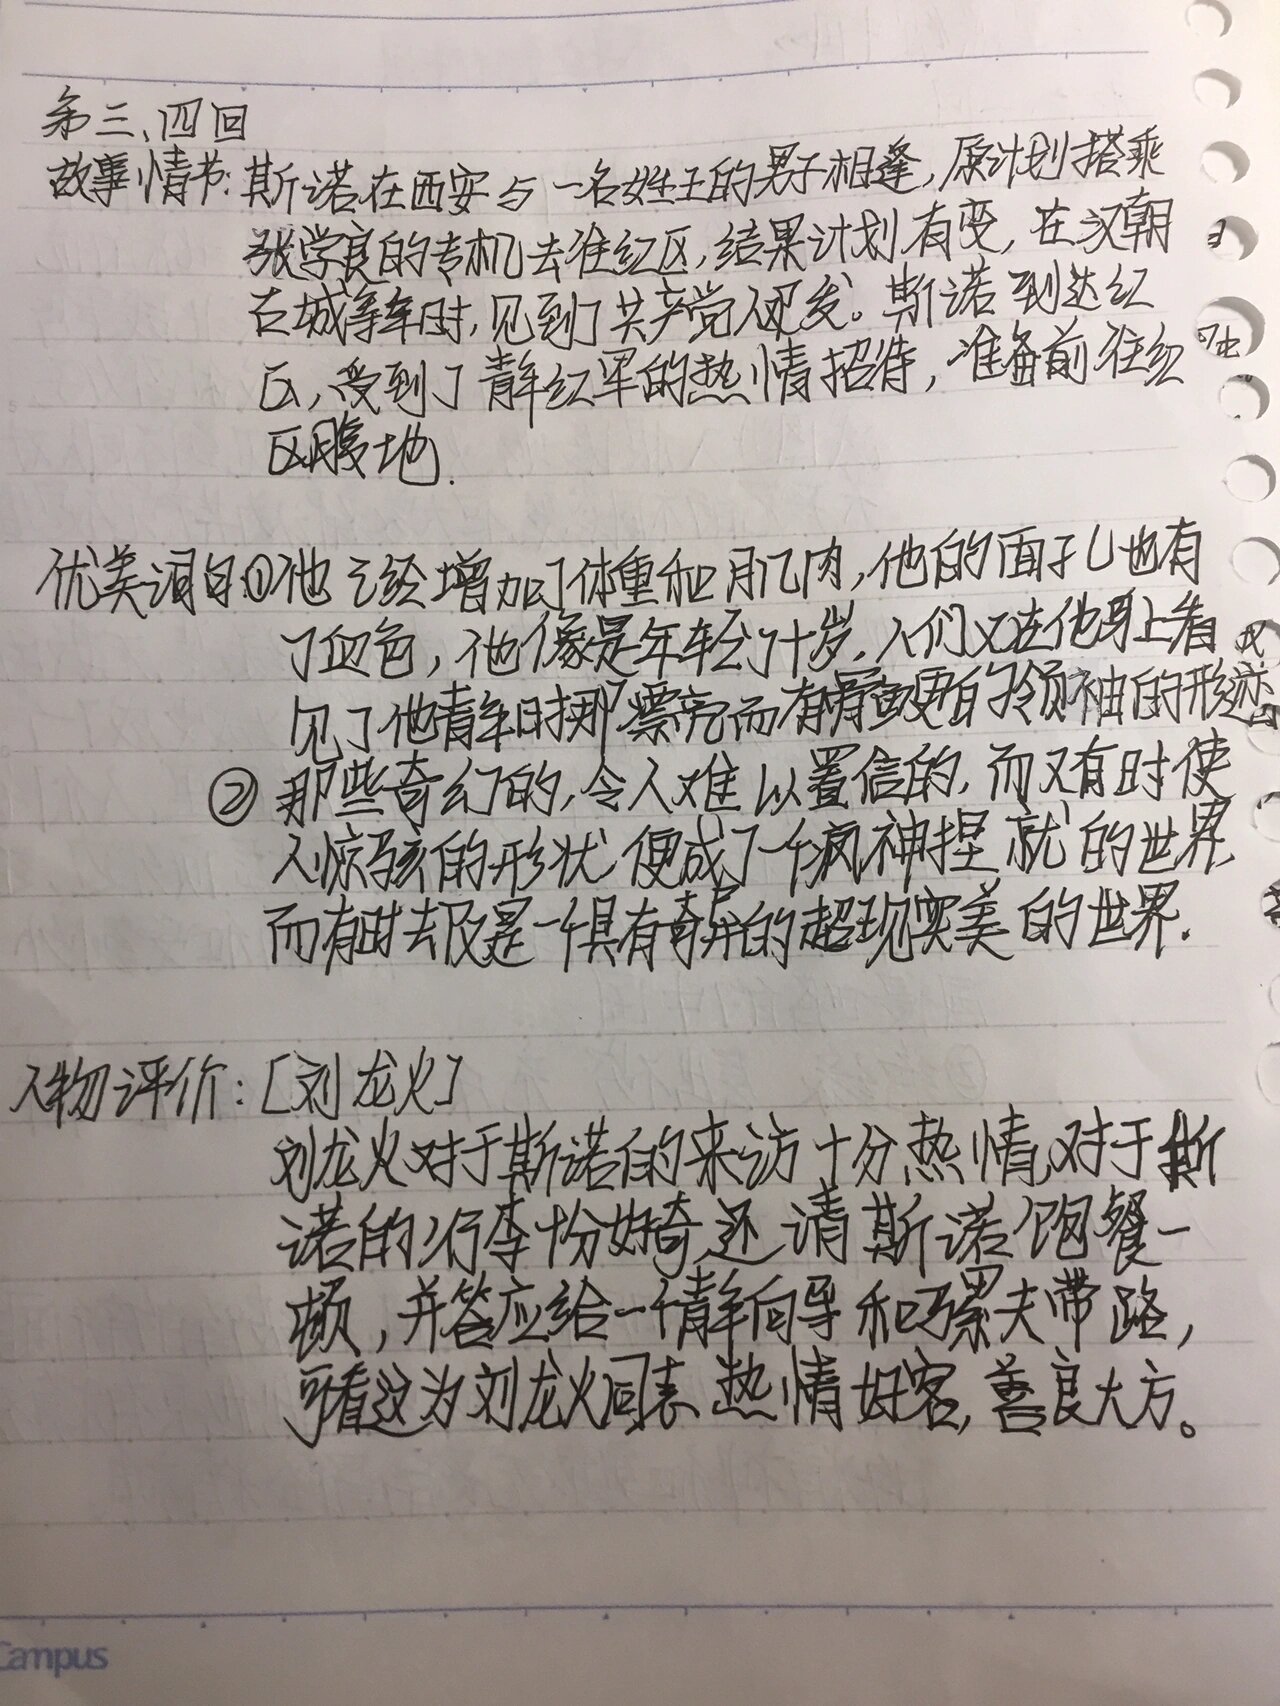 第三、四回
故事情节:斯诺在西安与一名姓王的男子相逢,原计划搭乘
张学良的专机去往红区,结果计划有变,在汉朝
古城等车时,见到了共产党人邓发。斯诺到达红
区,受到了青年红军的热情招待,准备前往红
区腹地.
优美词句①他已经增加了体重和肌肉,他的面孔也有
了血色,他像是年轻了十岁,人们又在他身上看
见了他青年时那漂亮而有骨气的领袖的形迹
②那些奇幻的,令人难以置信的,而又有时使
人惊骇的形状便成了一个疯神捏就的世界,
而有时去反是一个具有奇异的超现实美的世界.
人物评价:[刘龙火]
刘龙火对于斯诺的来访十分热情,对于斯
诺的行李十分好奇还请斯诺饱餐一
顿,并答应给一个青年向导和骡夫带路,
可看这为刘龙火同志热情好客,善良大方。
Campus